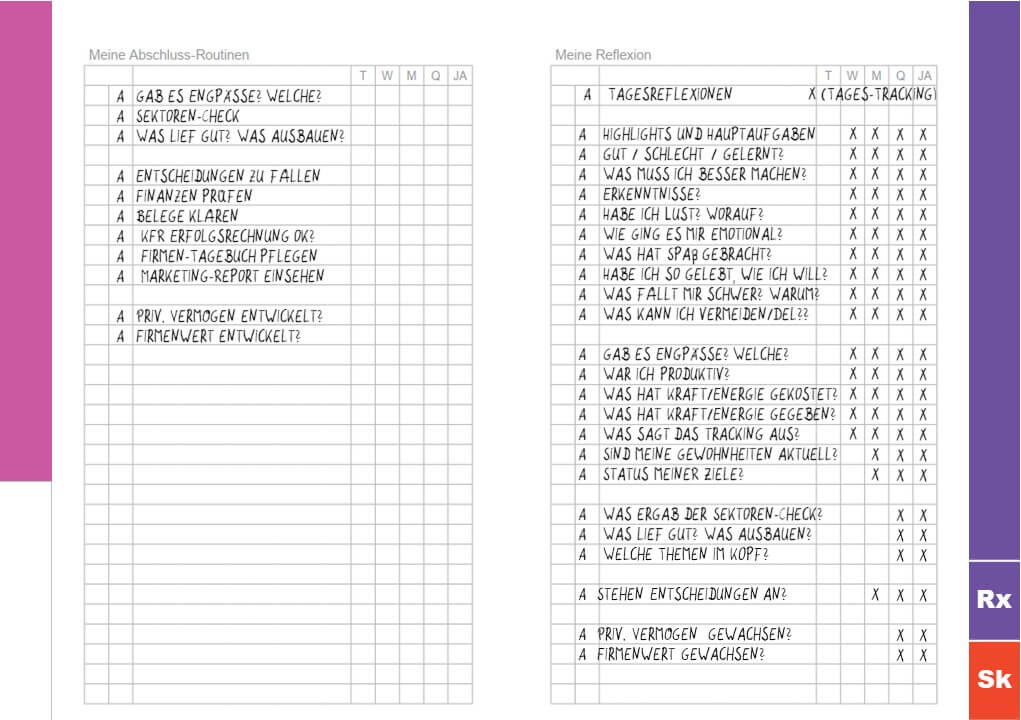 Meine Abschluss-Routinen
T W M Q JA
A GAB ES ENGPÄSSE? WELCHE?
A SEKTOREN-CHECK
A WAS LIEF GUT? WAS AUSBAUEN?
A ENTSCHEIDUNGEN ZU FÄLLEN
A FINANZEN PRÜFEN
A BELEGE KLÄREN
A KFR ERFOLGSRECHNUNG OK?
A FIRMEN-TAGEBUCH PFLEGEN
A MARKETING-REPORT EINSEHEN
A PRIV. VERMÖGEN ENTWICKELT?
A FIRMENWERT ENTWICKELT?
Meine Reflexion
T W M Q JA
A TAGESREFLEXIONEN X (TAGES-TRACKING)
A HIGHLIGHTS UND HAUPTAUFGABEN X X X X
A GUT / SCHLECHT / GELERNT? X X X X
A WAS MUSS ICH BESSER MACHEN? X X X X
A ERKENNTNISSE? X X X X
A HABE ICH LUST? WORAUF? X X X X
A WIE GING ES MIR EMOTIONAL? X X X X
A WAS HAT SPAß GEBRACHT? X X X X
A HABE ICH SO GELEBT, WIE ICH WILL? X X X X
A WAS FÄLLT MIR SCHWER? WARUM? X X X X
A WAS KANN ICH VERMEIDEN/DEL?? X X X X
A GAB ES ENGPÄSSE? WELCHE? X X X X
A WAR ICH PRODUKTIV? X X X X
A WAS HAT KRAFT/ENERGIE GEKOSTET? X X X X
A WAS HAT KRAFT/ENERGIE GEGEBEN? X X X X
A WAS SAGT DAS TRACKING AUS? X X X X
A SIND MEINE GEWOHNHEITEN AKTUELL? X X X
A STATUS MEINER ZIELE? X X X
A WAS ERGAB DER SEKTOREN-CHECK? X X
A WAS LIEF GUT? WAS AUSBAUEN? X X
A WELCHE THEMEN IM KOPF? X X
A STEHEN ENTSCHEIDUNGEN AN? X X X
A PRIV. VERMÖGEN GEWACHSEN? X X
A FIRMENWERT GEWACHSEN? X X
Rx
Sk